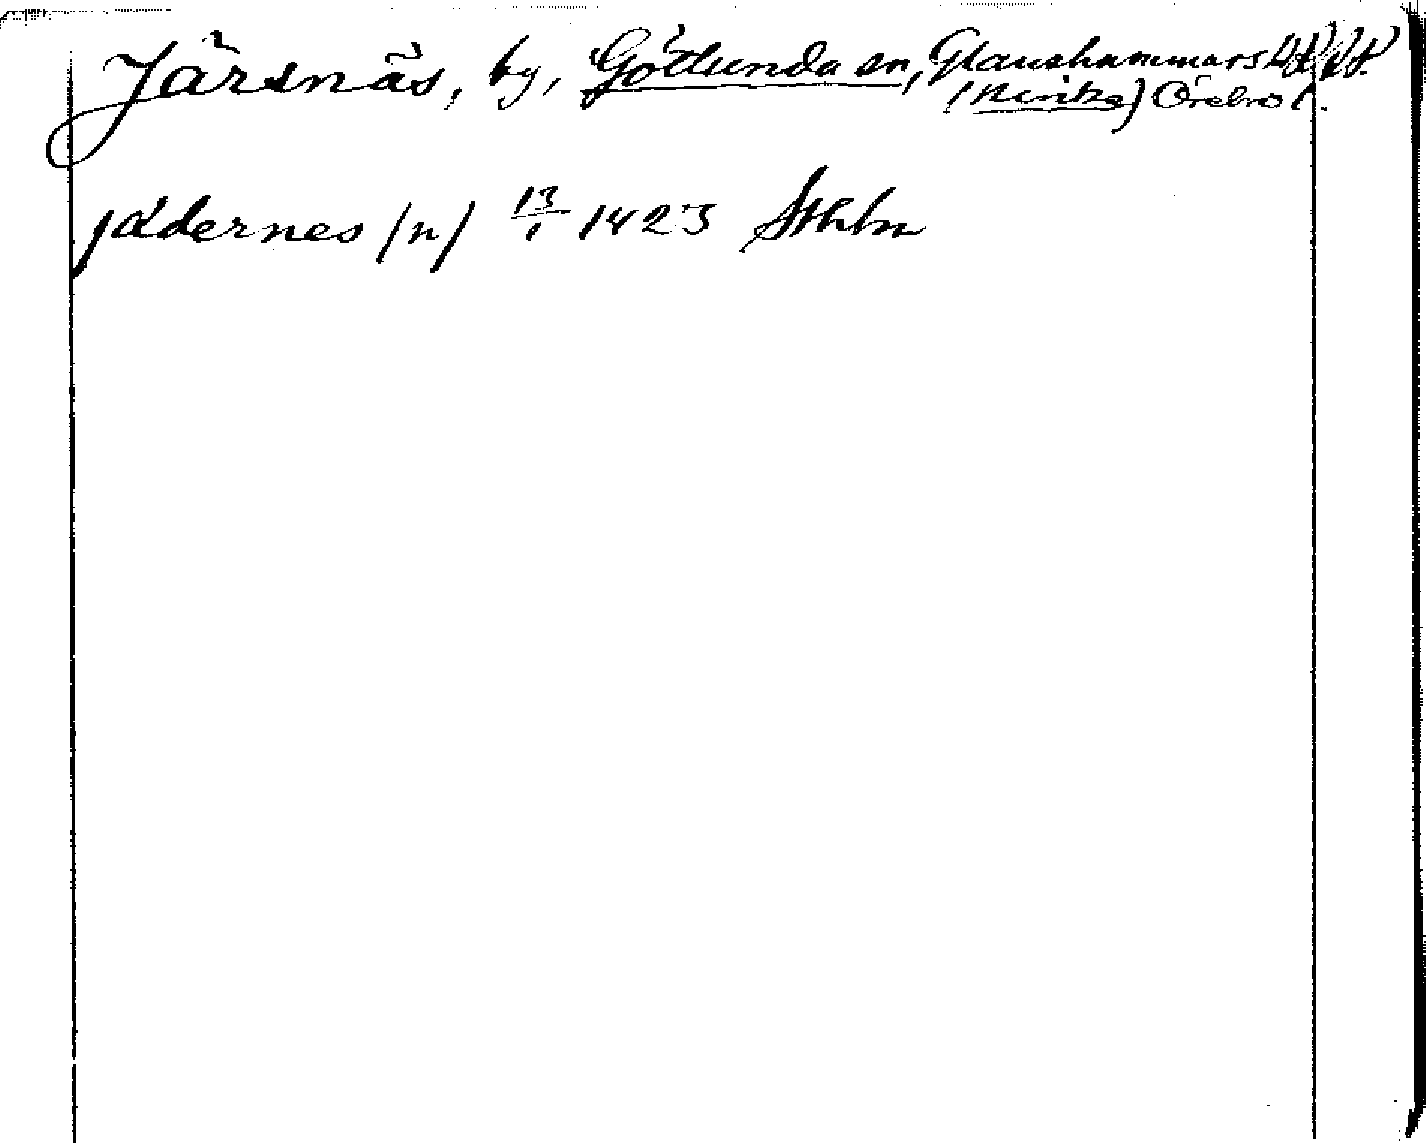 Järsnäs, by, Götlunda sn, Glanshammars hd
(Nerike) Örebro l.
jädernes (n) 13/1 1423 Sthlm